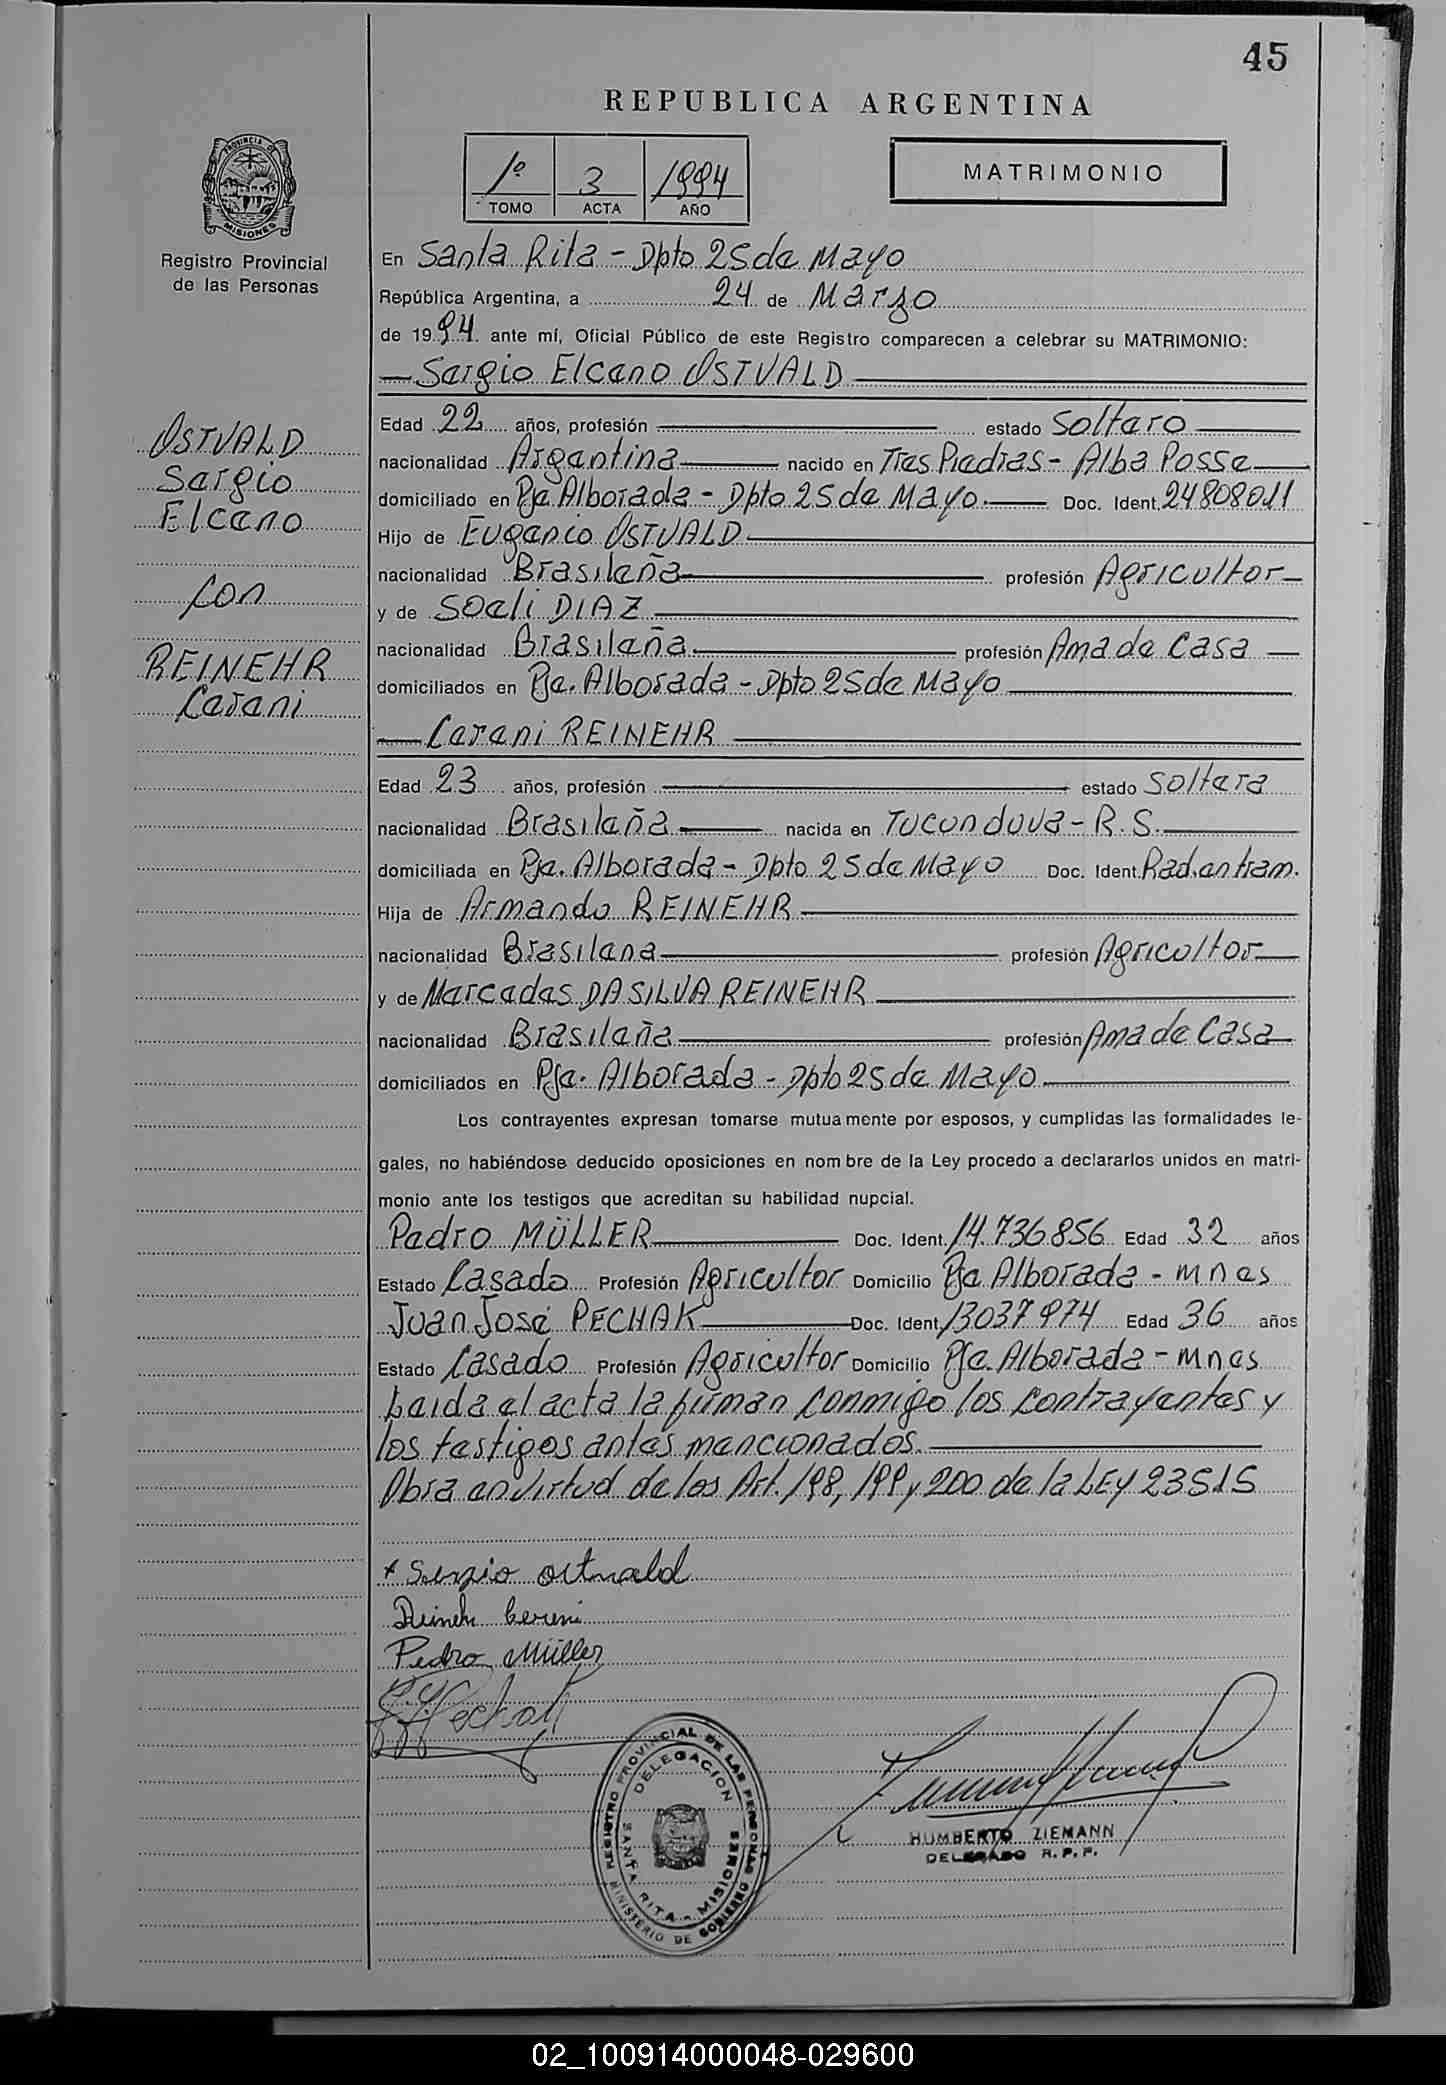 45
REPUBLICA ARGENTINA
PROVINCIA DE
MISIONES
Registro Provincial
de las Personas
1º 3 1994
TOMO ACTA AÑO
MATRIMONIO
En Santa Rita - Dpto 25 de Mayo
República Argentina, a 24 de Marzo
de 1994 ante mí, Oficial Público de este Registro comparecen a celebrar su MATRIMONIO:
Sergio Elceno OSTVALD
OSTVALD
Sergio
Elceno
con
REINEHR
Cereni
Edad 22 años, profesión estado Soltero
nacionalidad Argentina nacido en Tres Piedras - Alba Posse
domiciliado en Pje Alborada - Dpto 25 de Mayo. Doc. Ident. 24808011
Hijo de Eugenio OSTVALD
nacionalidad Brasileña profesión Agricultor
y de Soeli DIAZ
nacionalidad Brasileña profesión Ama de Casa
domiciliados en Pje. Alborada - Dpto 25 de Mayo
Cereni REINEHR
Edad 23 años, profesión estado Soltera
nacionalidad Brasileña nacida en Tucunduva - R.S.
domiciliada en Pje. Alborada - Dpto 25 de Mayo Doc. Ident. Rad. en tram.
Hija de Armando REINEHR
nacionalidad Brasilena profesión Agricultor
y de Mercedes DA SILVA REINEHR
nacionalidad Brasileña profesión Ama de Casa
domiciliados en Pje. Alborada - Dpto 25 de Mayo
Los contrayentes expresan tomarse mutuamente por esposos, y cumplidas las formalidades le-
gales, no habiéndose deducido oposiciones en nombre de la Ley procedo a declararlos unidos en matri-
monio ante los testigos que acreditan su habilidad nupcial.
Pedro MÜLLER Doc. Ident. 14.736.856 Edad 32 años
Estado Casado Profesión Agricultor Domicilio Pje Alborada - mnes
Juan José PECHAK Doc. Ident. 13037974 Edad 36 años
Estado Casado Profesión Agricultor Domicilio Pje. Alborada - mnes
Leida el acta la firman conmigo los contrayentes y
los testigos antes mencionados.
Obra en virtud de los Art. 198, 199 y 200 de la LEY 23515
x Sergio ostvald
Reinehr Cereni
Pedro Müller
Pechak
REGISTRO PROVINCIAL DE LAS PERSONAS
MINISTERIO DE GOBIERNO
DELEGACION
SANTA RITA - MISIONES
HUMBERTO ZIEMANN
DELEGADO R. P. P.
02_100914000048-029600